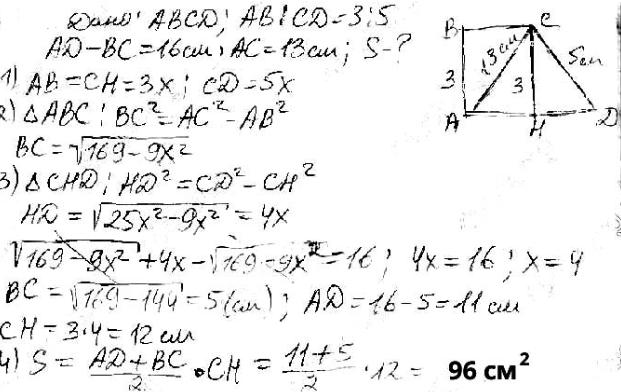 Дано: ABCD; AB:CD=3:5
AD-BC=16см; AC=13см; S-?
1) AB=CH=3x; CD=5x
2) △ABC; BC²=AC²-AB²
BC=√169-9x²
3) △CHD; HD²=CD²-CH²
HD=√25x²-9x²=4x
√169-9x²+4x-√169-9x²=16; 4x=16; x=4
BC=√169-144=5(см); AD=16-5=11см
CH=3·4=12см
4) S=AD+BC/2·CH=11+5/2·12= 96 см²
B C
13см 5см
3 3
A H D